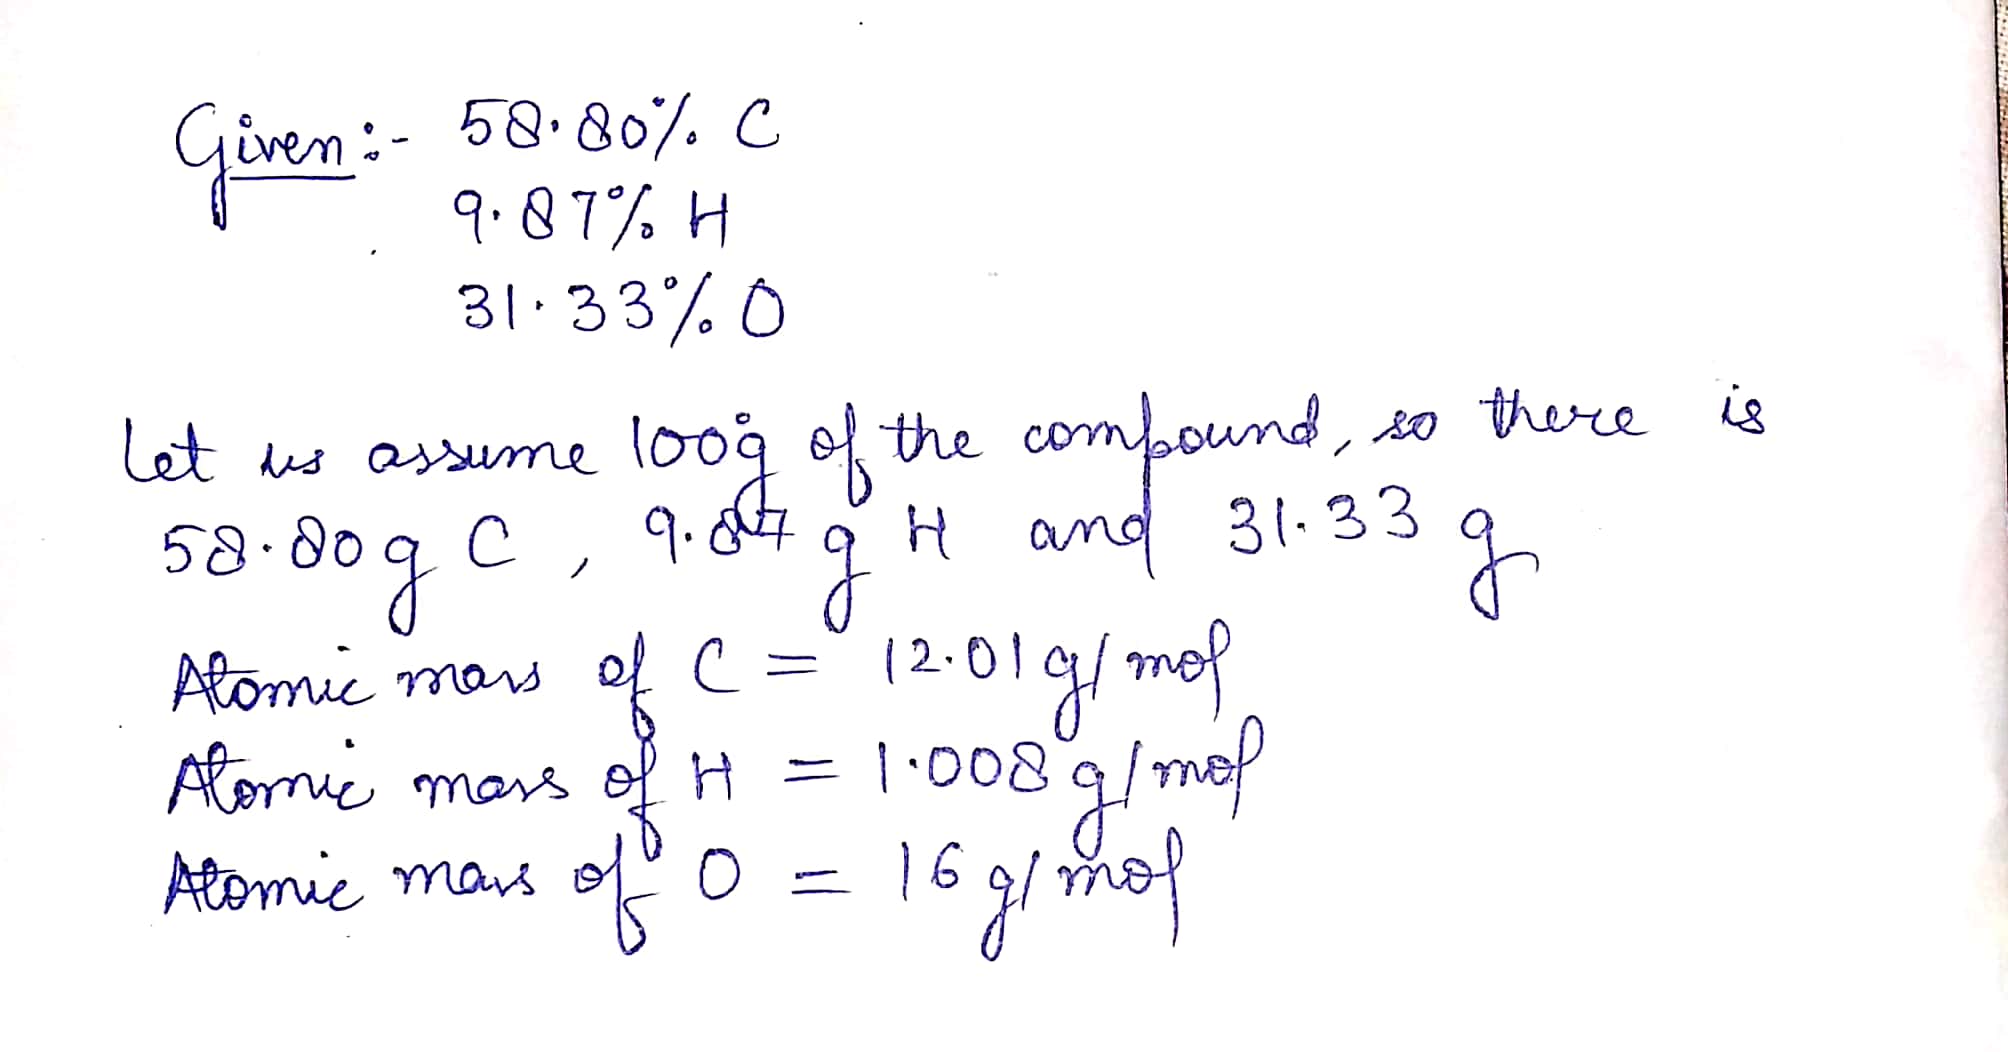 Given:- 58.80% C
9.87% H
31.33% O
Let us assume 100g of the compound, so there is
58.80 g C, 9.87 g H and 31.33 g
Atomic mass of C = 12.01 g/mol
Atomic mass of H = 1.008 g/mol
Atomic mass of O = 16 g/mol